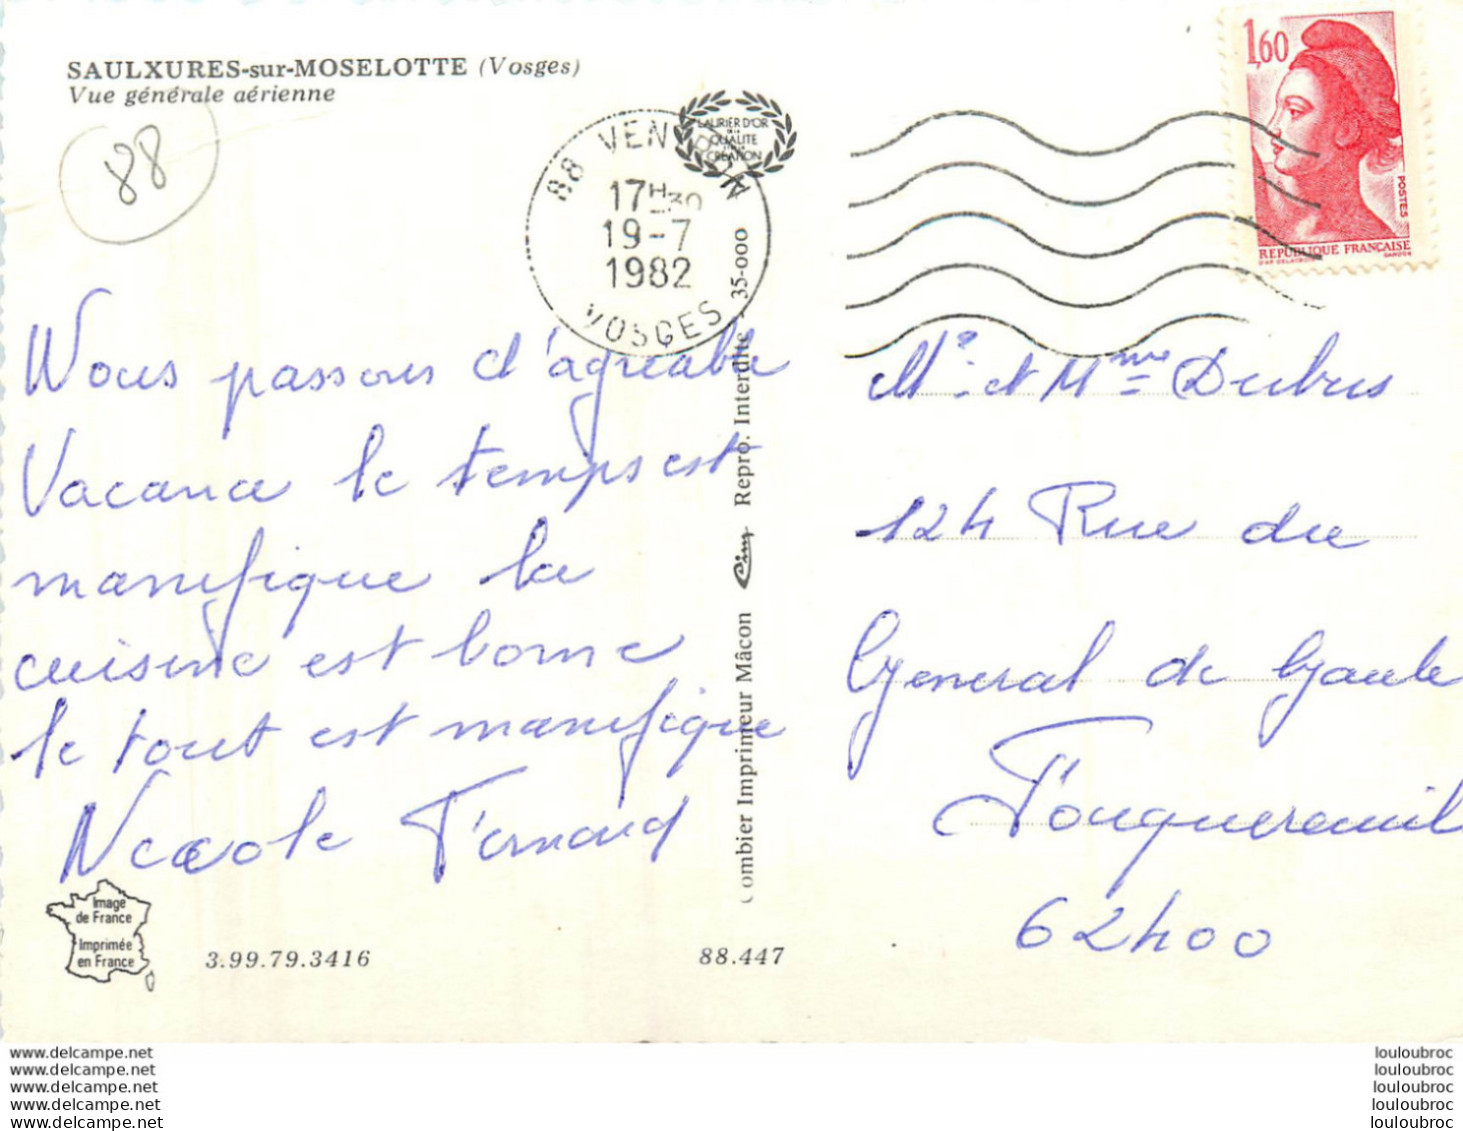 SAULXURES-sur-MOSELOTTE (Vosges)
Vue générale aérienne
88
LAURIER D'OR
DE LA
QUALITE
CREATION
88 VENTRON
17H30
19-7
1982
VOSGES
1,60
POSTES
REPUBLIQUE FRANÇAISE
D'AP. DELACROIX GANDON
Nous passons d'agréable
Vacance le temps est
manifique la
cuisine est bonne
le tout est manifique
Nicole Fernand
Mr et Mme Dubus
124 Rue du
General de Gaule
Fouquereuil
62400
Combier Imprimeur Mâcon Cim Repro. Interdite 35-000
Image
de France
Imprimée
en France
3.99.79.3416
88.447
www.delcampe.net
www.delcampe.net
www.delcampe.net
www.delcampe.net
www.delcampe.net
louloubroc
louloubroc
louloubroc
louloubroc
louloubroc